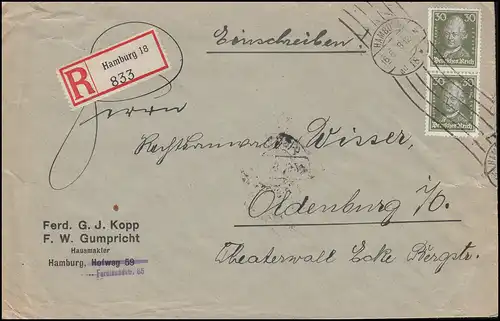 Einschreiben!
HAMBURG
30 30
Deutsches Reich
30 30
Deutsches Reich
R
Hamburg 18
833
Herrn
Rechtsanwalt Wisser,
Oldenburg i/O.
Theaterwall Ecke Bergstr.
Ferd. G. J. Kopp
F. W. Gumpricht
Hausmakler
Hamburg, Hofweg 59